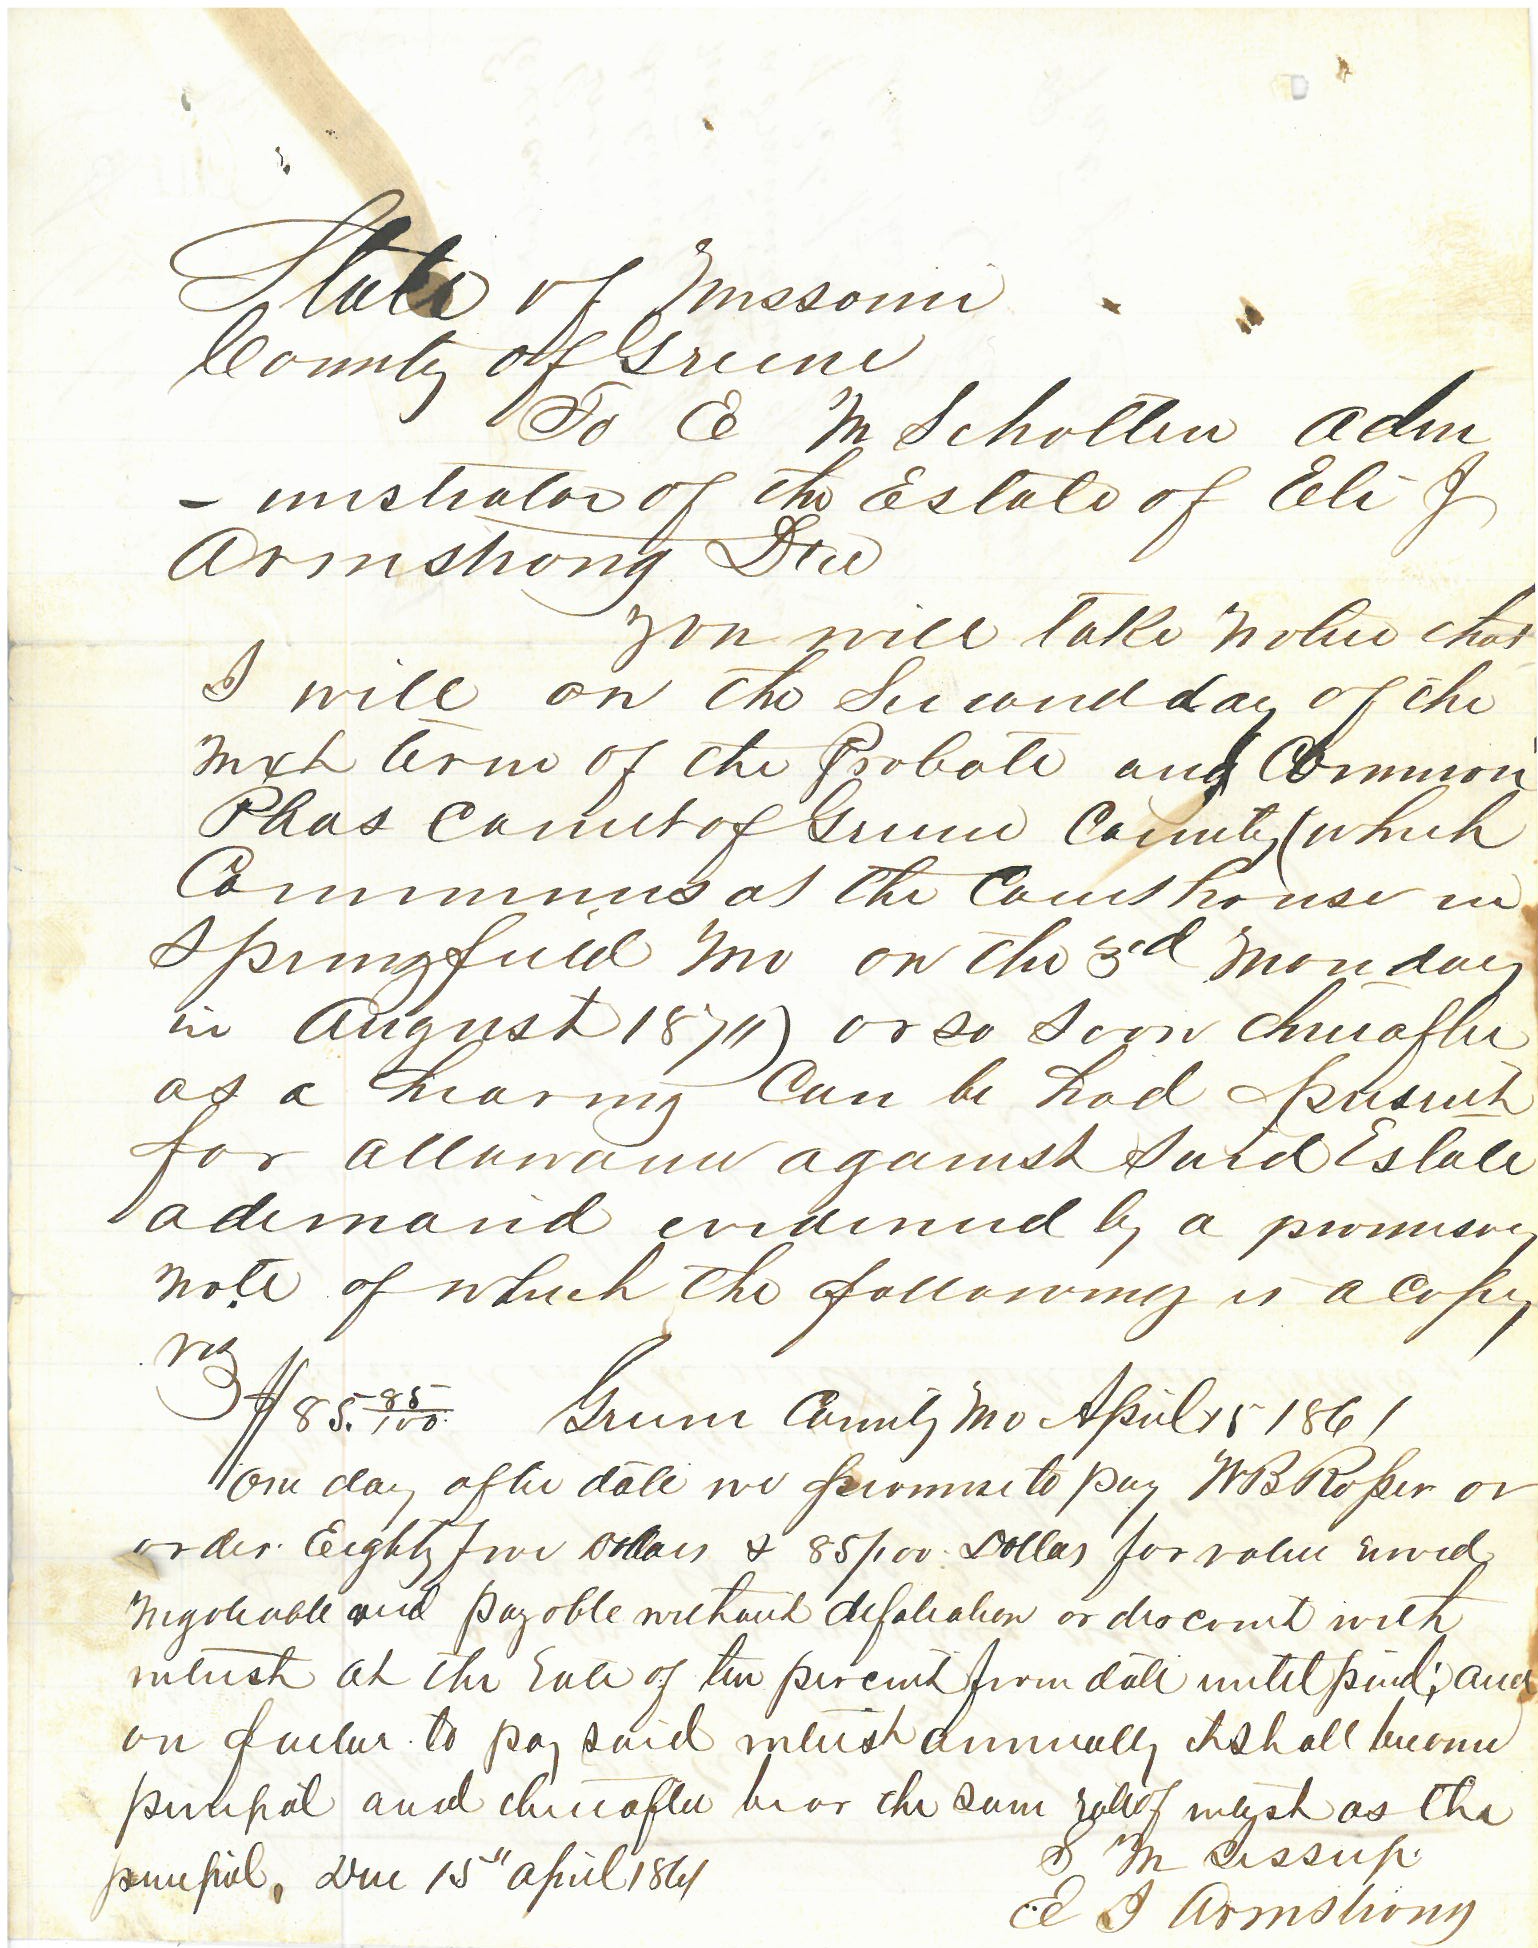 State of Missouri
County of Greene
To E M Scholten adm
- inistrator of the Estate of Eli J
Armstrong Dec
You will take notice that
I will on the Second day of the
next term of the Probate and Common
Pleas Court of Greene County (which
Commences at the Court house in
Springfield Mo on the 3rd Monday
in August 1871) or so soon thereafter
as a hearing can be had present
for allowance against said Estate
a demand evidenced by a promisory
note of which the following is a copy
viz
$85. 85/100 Greene County Mo April 15 1861
One day after date we promise to pay W B Roper or
order Eighty five Dollars & 85/100 Dollars for value rcived
negotiable and payable without defalcation or discount with
interest at the rate of ten percent from date until paid; and
on failur to pay said interest annually it shall become
principal and thereafter bear the same rate of interest as the
principal, Due 15" April 1861
S M Jessup
E J Armstrong